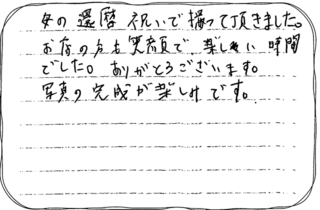 母の還暦祝いで撮って頂きました。
お店の方も笑顔で、楽しい時間
でした。ありがとうございます。
写真の完成が楽しみです。